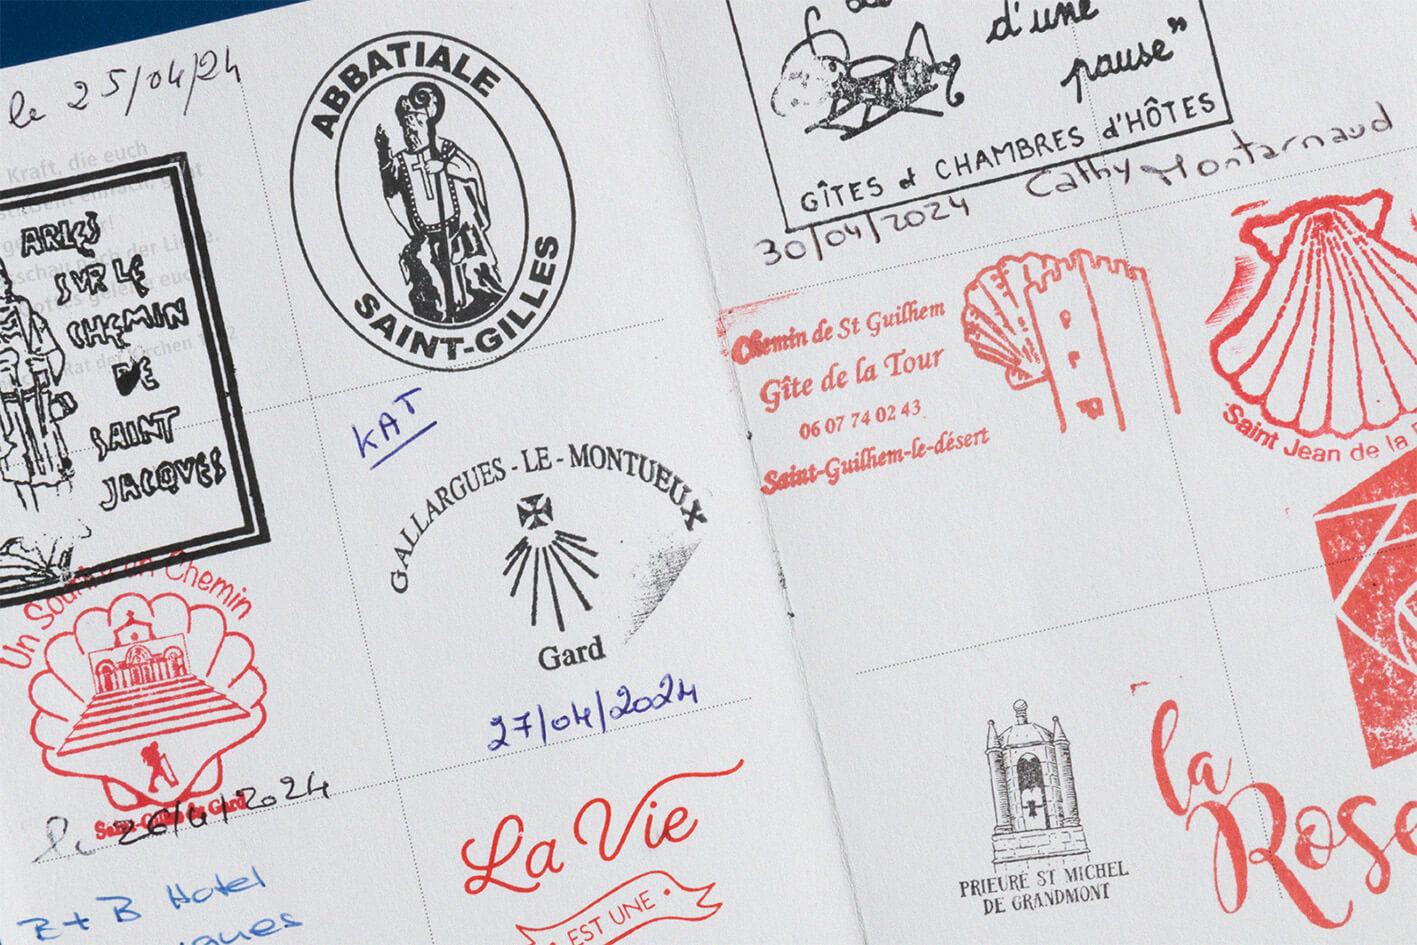 le 25/04/24
ABBATIALE
SAINT-GILLES
Kraft, die euch
ARLES
SUR LE
CHEMIN
DE
SAINT
JACQUES
KAT
GALLARGUES - LE - MONTUEUX
Gard
27/04/2024
Un Sourire un Chemin
Saint-Gilles du Gard
le 26/4/2024
B + B Hotel
La Vie
EST UNE
d'une
pause"
GÎTES et CHAMBRES d'HÔTES
30/04/2024 Cathy Montarnaud
Chemin de St Guilhem
Gîte de la Tour
06 07 74 02 43
Saint-Guilhem-le-désert
Saint Jean de la
PRIEURÉ ST MICHEL
DE GRANDMONT
la
Rose